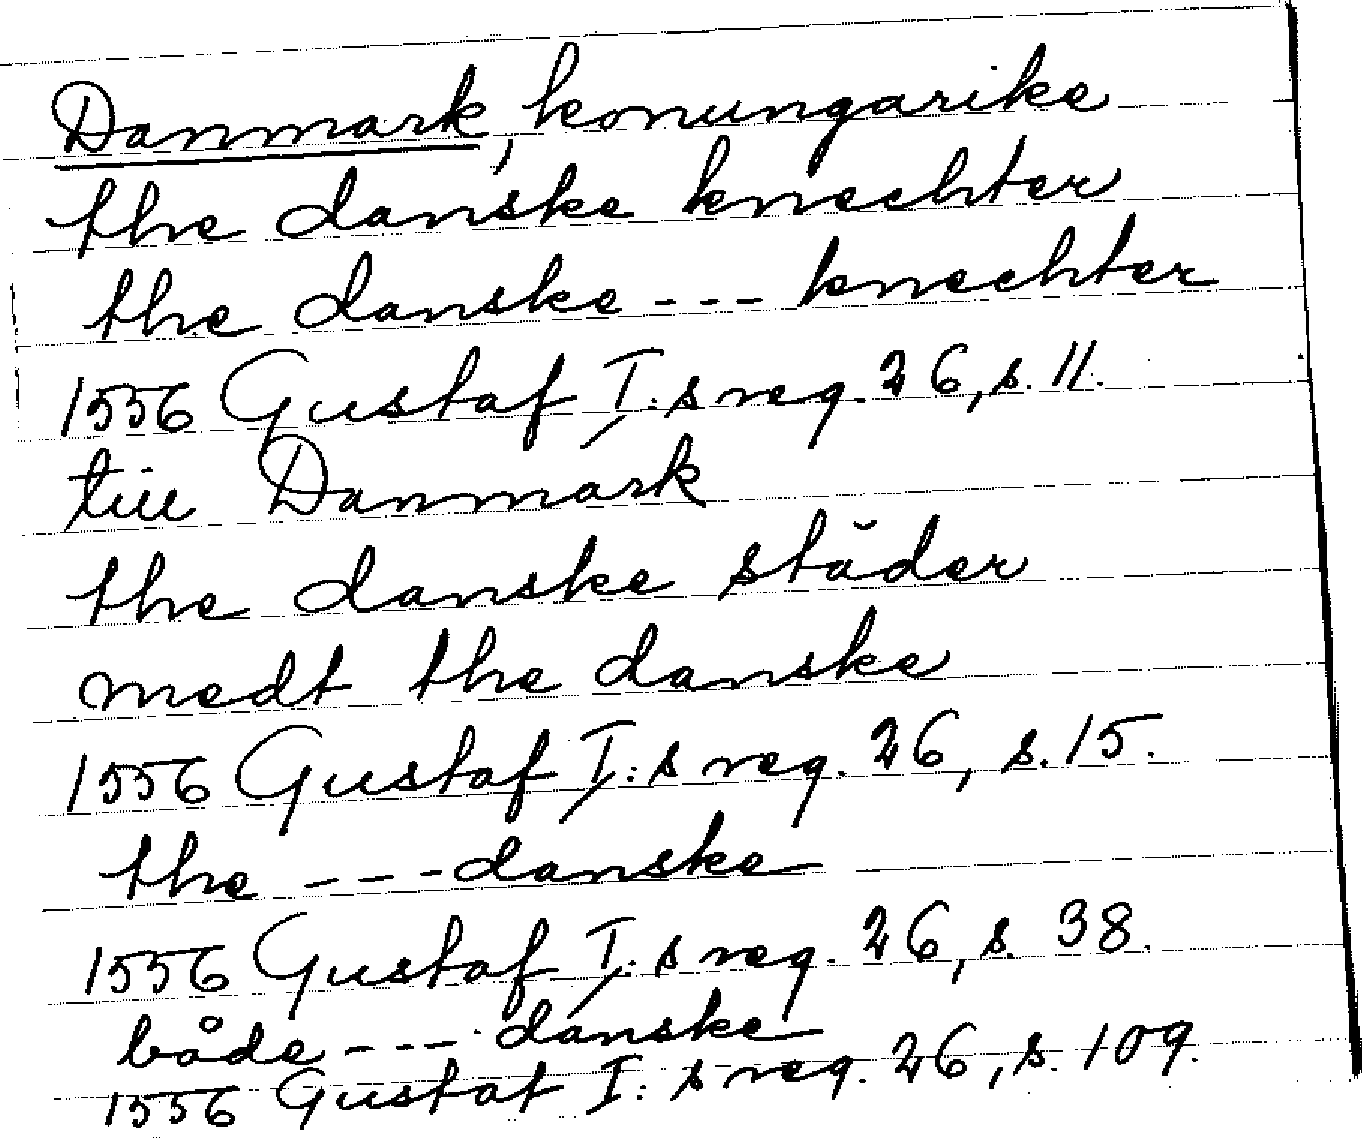 Danmark, konungarike
the danske knechter
the danske --- knechter
1556 Gustaf I:s reg. 26, s. 11.
till Danmark
the danske städer
medt the danske
1556 Gustaf I:s reg. 26, s. 15.
the --- danske
1556 Gustaf I:s reg. 26, s. 38.
både --- danske
1556 Gustaf I:s reg. 26, s. 109.